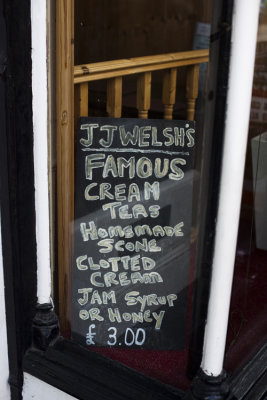 JJWELSH'S
FAMOUS
CREAM
TEAS
HOMEMADE
SCONE
CLOTTED
CREAM
JAM SYRUP
OR HONEY
£ 3.00